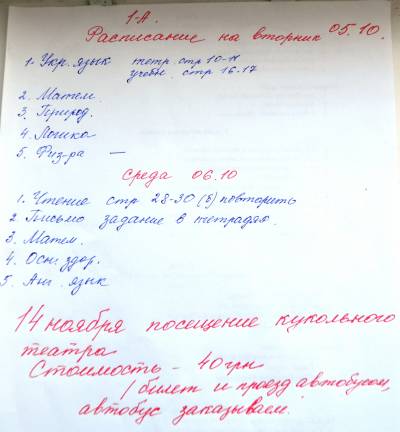 1-А.
Расписание на вторник 05.10.
1. Укр. язык тетр. стр 10-11
учебн. стр 16-17
2. Матем.
3. Природ.
4. Логика
5. Физ-ра —
Среда 06.10
1. Чтение стр 28-30 (5) повторить
2 Письмо задание в тетрадях.
3. Матем.
4. Осн. здор.
5. Анг. язык
14 ноября посещение кукольного
театра
Стоимость - 40 грн
/ билет и проезд автобусом,
автобус заказываем.